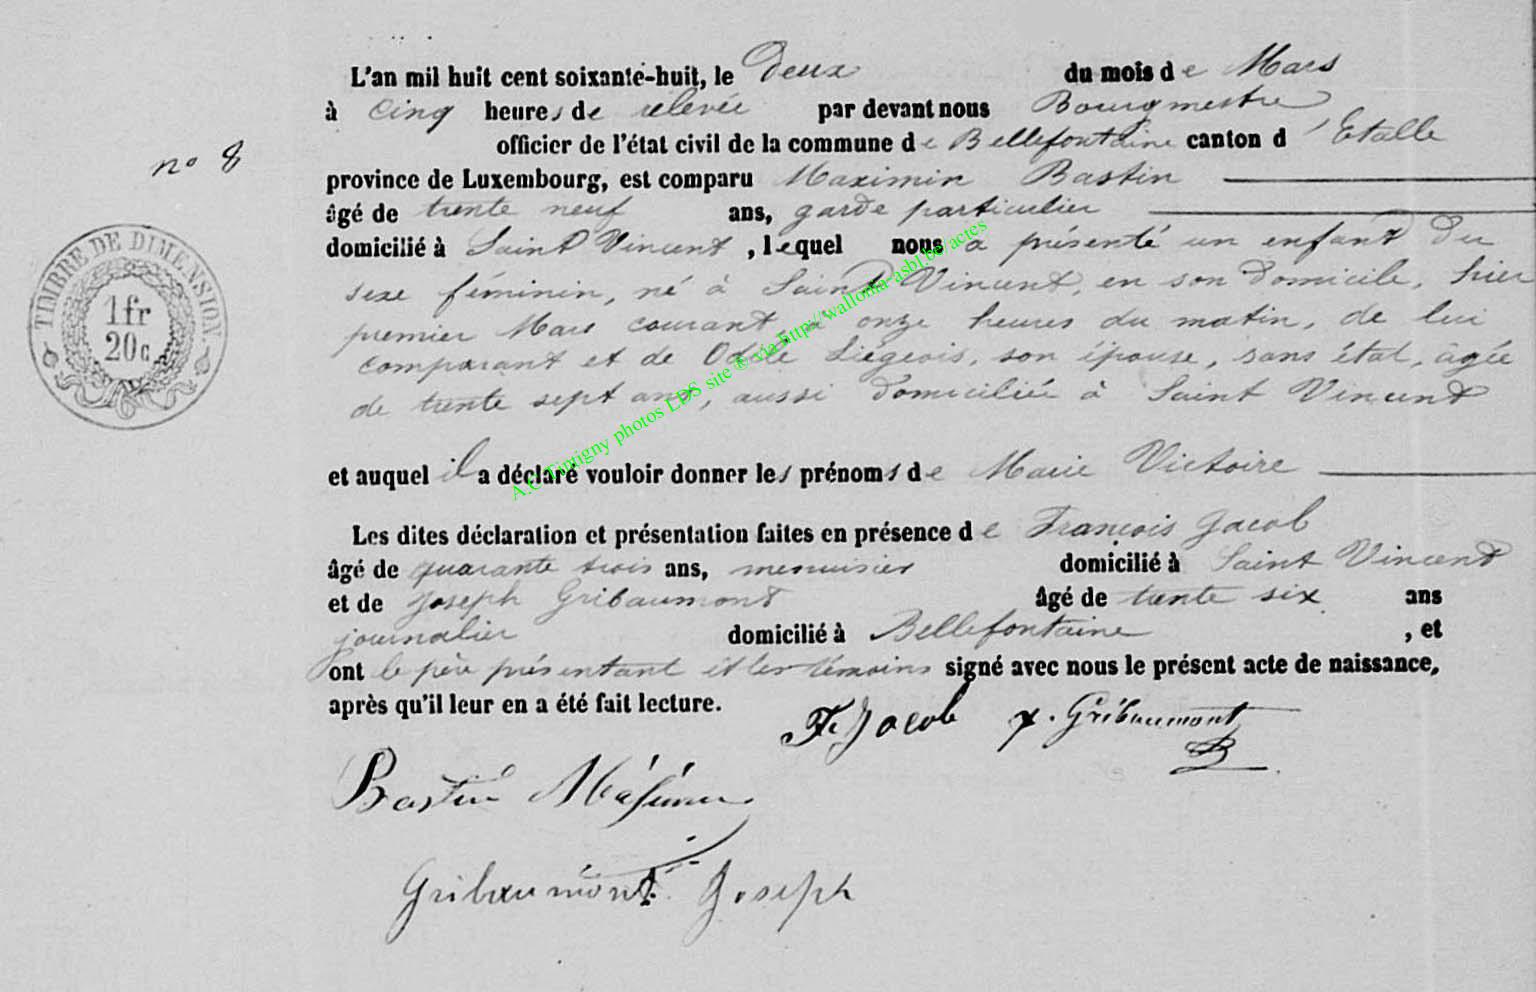 L'an mil huit cent soixante-huit, le deux du mois de Mars
à cinq heures de relevée par devant nous Bourgmestre
officier de l'état civil de la commune de Bellefontaine canton d'Etalle
n° 8
province de Luxembourg, est comparu Maximin Bastin
âgé de trente neuf ans, garde particulier
domicilié à Saint Vincent, lequel nous a présenté un enfant du
sexe féminin, né à Saint Vincent, en son domicile, hier
premier Mars courant, à onze heures du matin, de lui
comparant et de Odile Liégeois, son épouse, sans état, âgée
de trente sept ans, aussi domiciliée à Saint Vincent
et auquel il a déclaré vouloir donner les prénoms de Marie Victoire
Les dites déclaration et présentation faites en présence de François Jacob
âgé de quarante trois ans, menuisier domicilié à Saint Vincent
et de Joseph Gribaumont âgé de trente six ans
journalier domicilié à Bellefontaine, et
ont le père présentant et les témoins signé avec nous le présent acte de naissance,
après qu'il leur en a été fait lecture.
Fr Jacob Gribaumont
Bastin
Gribaumont Joseph
TIMBRE DE DIMENSION.
1 fr
20 c
A.C Tintigny photos LDS site © via http://wallonia-asbl.be/actes